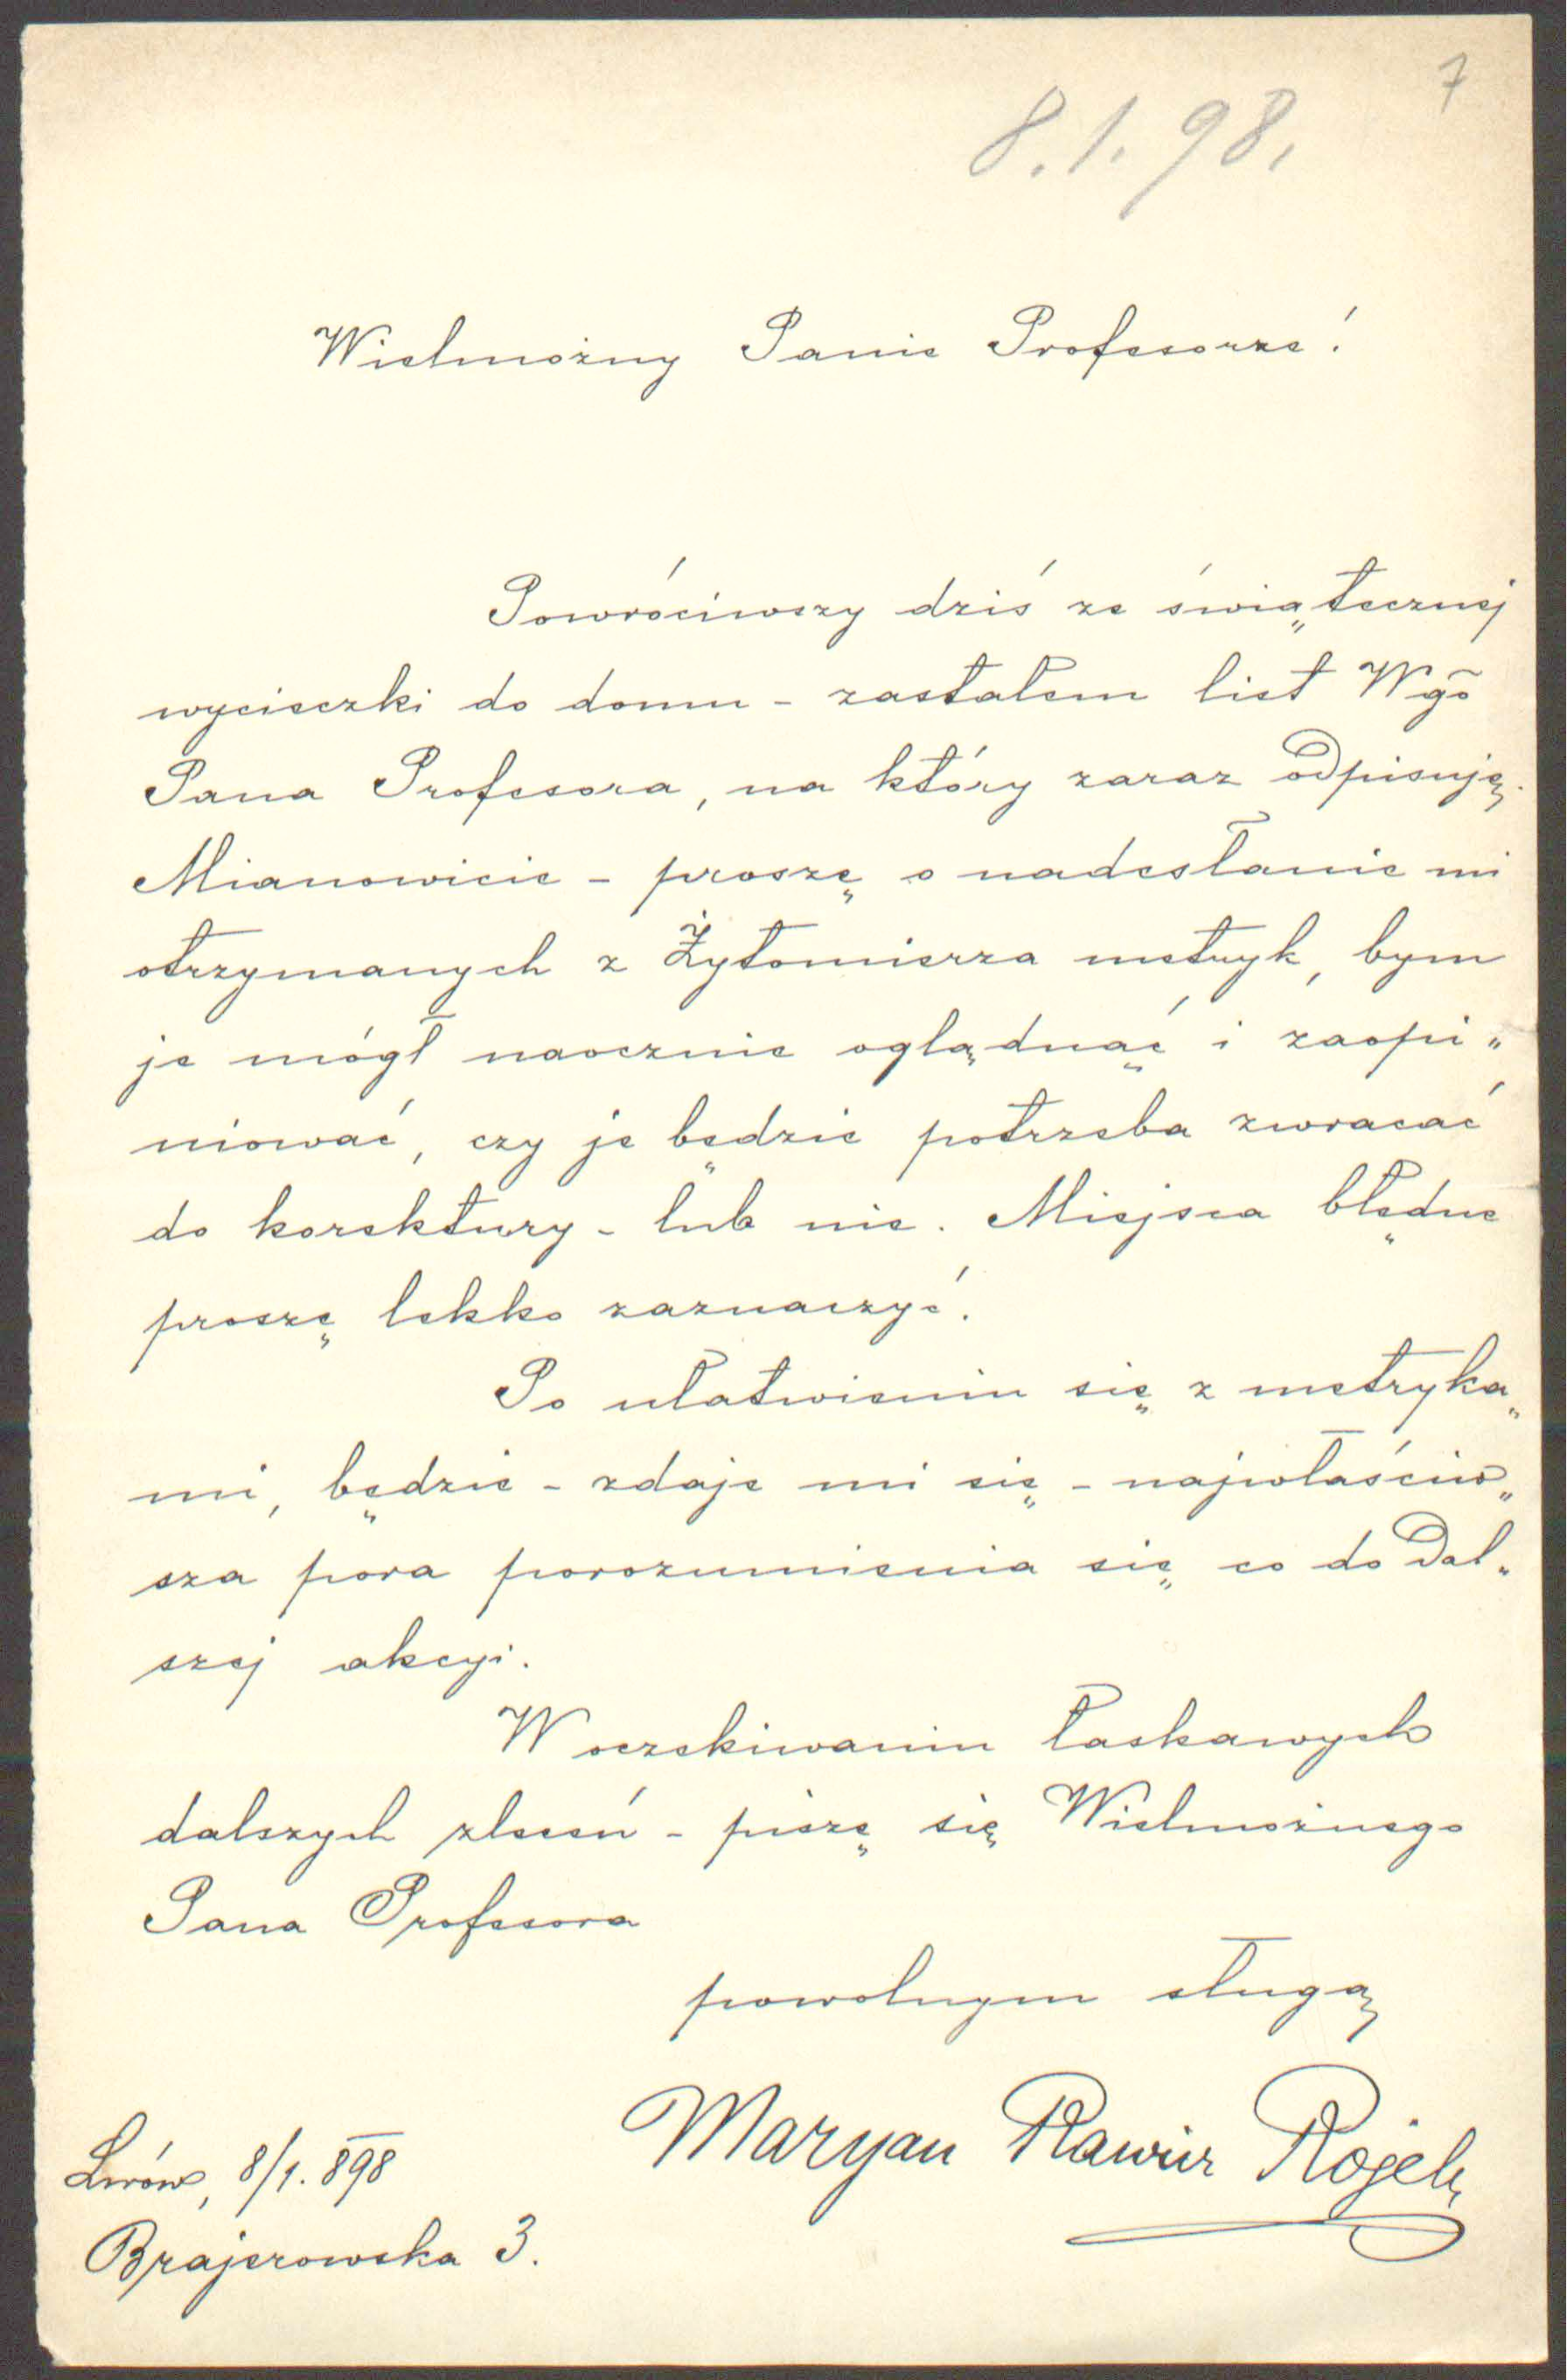 7
8.1.98.
Wielmożny Panie Profesorze!
Powróciwszy dziś ze świątecznej
wycieczki do domu - zastałem list Wgo
Pana Profesora, na który zaraz odpisuję.
Mianowicie - proszę o nadesłanie mi
otrzymanych z Żytomierza metryk, bym
je mógł naocznie oglądnąć i zaopi„
niować, czy je będzie potrzeba zwracać
do korektury - lub nie. Miejsca błędne
proszę lekko zaznaczyć.
Po ułatwieniu się z metryka„
mi, będzie - zdaje mi się - najwłaściw„
sza pora porozumienia się co do dal„
szej akcyi.
W oczekiwaniu łaskawych
dalszych zleceń - piszę się Wielmożnego
Pana Profesora
powolnym sługą
Maryan Rawicz
Lwów, 8/1. 898
Brajerowska 3.